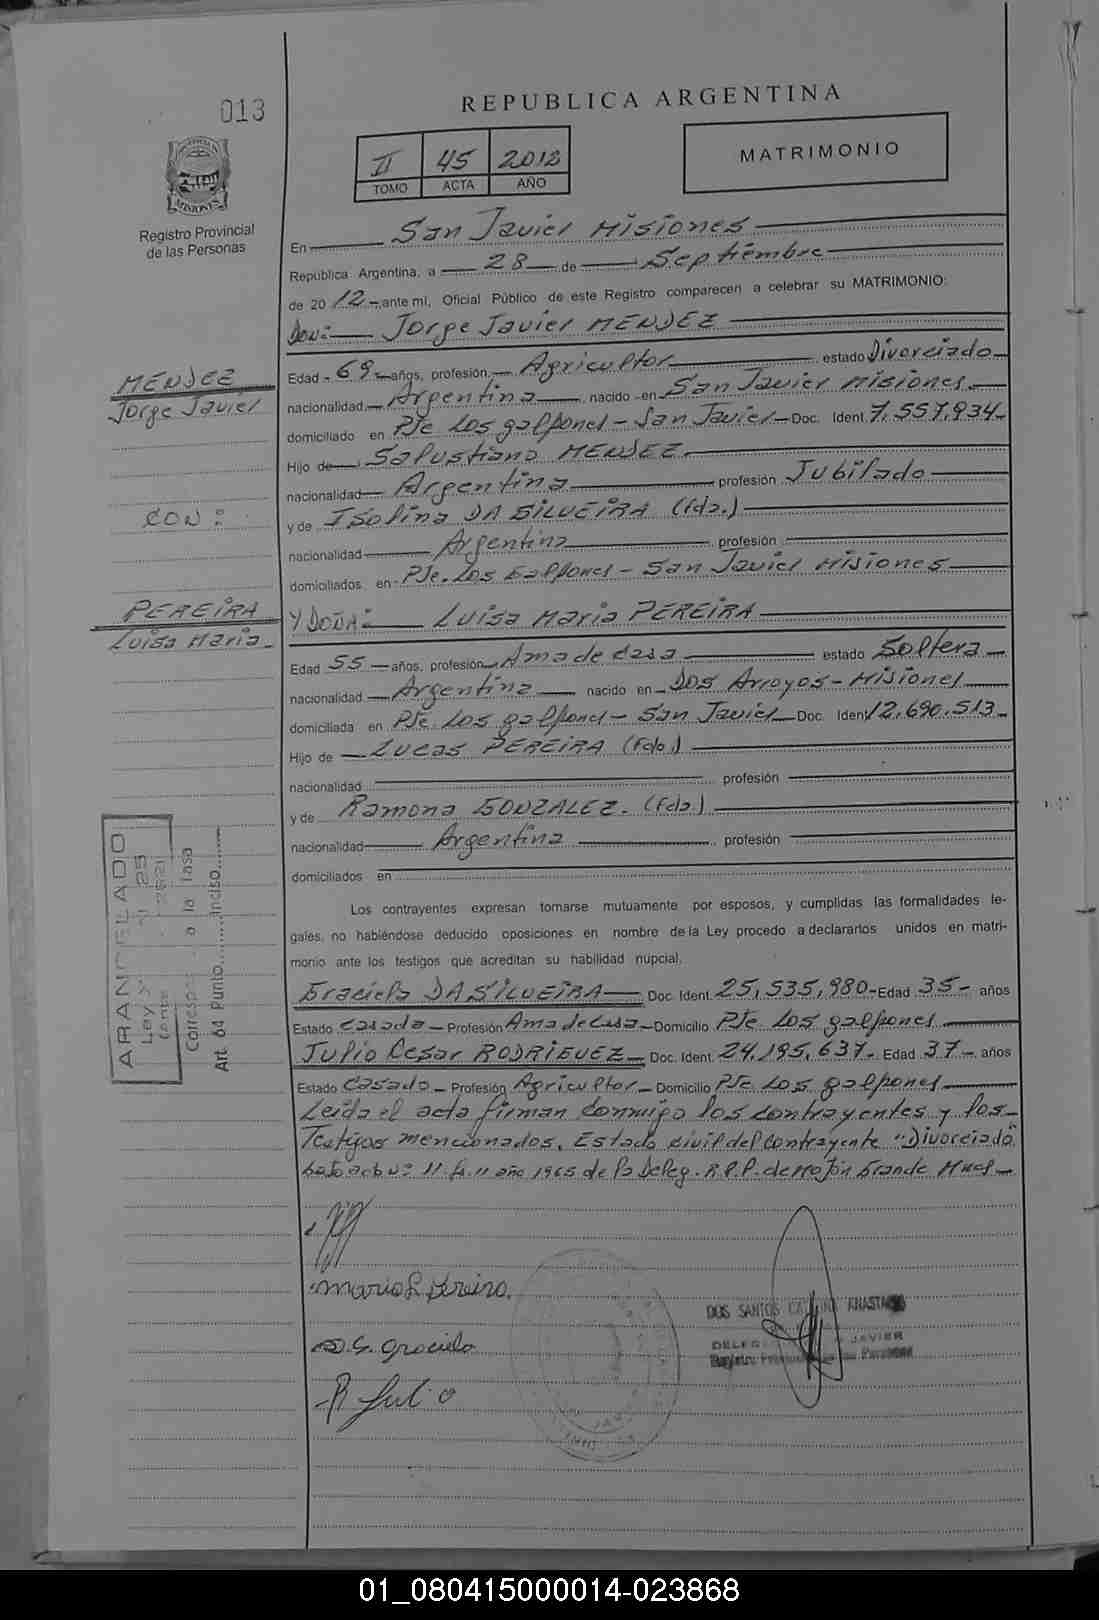 013
REPUBLICA ARGENTINA
II 45 2012
TOMO ACTA AÑO
MATRIMONIO
MISIONES
Registro Provincial
de las Personas
En San Javier Misiones
República Argentina, a 28 de Septiembre
de 2012 ante mí, Oficial Público de este Registro comparecen a celebrar su MATRIMONIO:
DON: Jorge Javier MENDEZ
MENDEZ
Jorge Javier
Edad 69 años, profesión Agricultor estado Divorciado
nacionalidad Argentina, nacido en San Javier Misiones
domiciliado en Pje Los galpones - San Javier Doc. Ident. 7.557.934
Hijo de Salustiano MENDEZ
nacionalidad Argentina profesión Jubilado
CON:
y de Isolina DA SILVEIRA (fda.)
nacionalidad Argentina profesión
domiciliados en Pje. Los Galpones - San Javier Misiones
PEREIRA
Luisa Maria
Y DOÑA: Luisa Maria PEREIRA
Edad 55 años, profesión Ama de casa estado Soltera
nacionalidad Argentina nacido en Dos Arroyos - Misiones
domiciliada en Pje Los galpones - San Javier Doc. Ident 12.690.513
Hijo de Lucas PEREIRA (Fdo.)
nacionalidad profesión
y de Ramona GONZALEZ. (Fda.)
nacionalidad Argentina profesión
domiciliados en
Los contrayentes expresan tomarse mutuamente por esposos, y cumplidas las formalidades le-
gales, no habiéndose deducido oposiciones en nombre de la Ley procedo a declararlos unidos en matri-
monio ante los testigos que acreditan su habilidad nupcial.
ARANCELADO
Ley
Corresp a la Tasa
Art. 64 Punto Inciso
Graciela DA SILVEIRA Doc. Ident. 25,535,980 - Edad 35 - años
Estado Casada - Profesión Ama de Casa - Domicilio Pje Los galpones
Julio Cesar RODRIGUEZ Doc. Ident. 24.195.637 - Edad 37 - años
Estado Casado - Profesión Agricultor - Domicilio Pje Los galpones
Leida el acta firman conmigo los contrayentes y los
Testigos mencionados. Estado civil del contrayente "Divorciado"
año 1965 de la Deleg. R.P.P. de Mojón Grande Mnes
Maria L Pereira.
D.S. Graciela
R Julio
DOS SANTOS ANASTACIA
DELEG JAVIER
Registro Personas
01_080415000014-023868